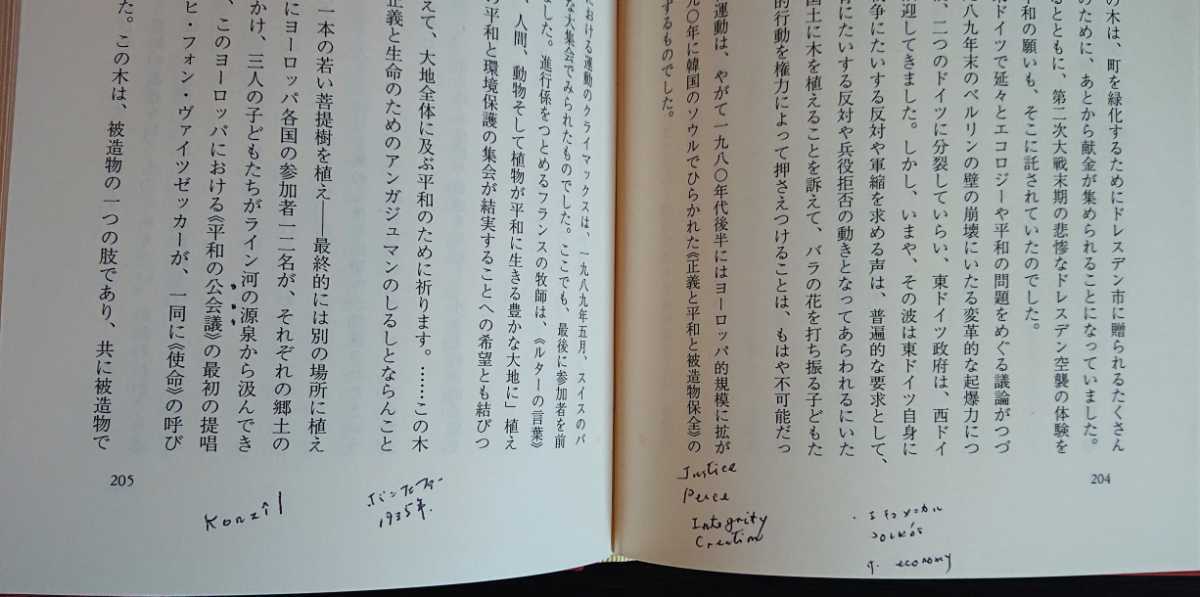 の木は、町を緑化するためにドレスデン市に贈られるたくさん
のために、あとから献金が集められることになっていました。
るとともに、第二次大戦末期の悲惨なドレスデン空襲の体験を
平和の願いも、そこに託されていたのでした。
東ドイツで延々とエコロジーや平和の問題をめぐる議論がつづ
九八九年末のベルリンの壁の崩壊にいたる変革的な起爆力につ
二つのドイツに分裂していらい、東ドイツ政府は、西ドイ
歓迎してきました。しかし、いまや、その波は東ドイツ自身に
戦争にたいする反対や軍縮を求める声は、普遍的な要求として、
にたいする反対や兵役拒否の動きとなってあらわれるにいた
国土に木を植えることを訴えて、バラの花を打ち振る子どもた
的行動を権力によって押さえつけることは、もはや不可能だっ
運動は、やがて一九八〇年代後半にはヨーロッパ的規模に拡が
九〇年に韓国のソウルでひらかれた《正義と平和と被造物保全》の
ずるものでした。
204
Justice
Peace
Integrity
Creation
・エキュメニカル
economy
における運動のクライマックスは、一九八九年五月、スイスのバ
な大集会でみられたものでした。ここでも、最後に参加者を前
ました。進行係をつとめるフランスの牧師は、《ルターの言葉》
人間、動物そして植物が平和に生きる豊かな大地に」植え
の平和と環境保護の集会が結実することへの希望とも結びつ
えて、大地全体に及ぶ平和のために祈ります。……この木
正義と生命のためのアンガジュマンのしるしとならんこと
一本の若い菩提樹を植え――最終的には別の場所に植え
にヨーロッパ各国の参加者一二名が、それぞれの郷土の
かけ、三人の子どもたちがライン河の源泉から汲んでき
このヨーロッパにおける《平和の公会議》の最初の提唱
ヒ・フォン・ヴァイツゼッカーが、一同に《使命》の呼び
た。この木は、被造物の一つの肢であり、共に被造物で
205
ボンヘッファー
1935年.
Konzil